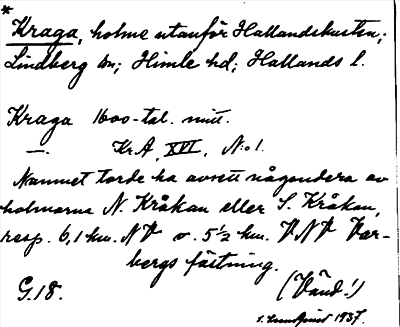 *
Kraga, holme utanför Hallandskusten;
Lindberg sn; Himle hd; Hallands l.
Kraga 1600-tal. mitt.
—. Kr.A, XVI, N:o 1.
Namnet torde ha avsett någondera av
holmarna N. Kråkan eller S. Kråkan,
resp. 6,1 km. NV o. 5½ km. VNV Var-
bergs fästning.
G.18. (Vänd!)
1937.